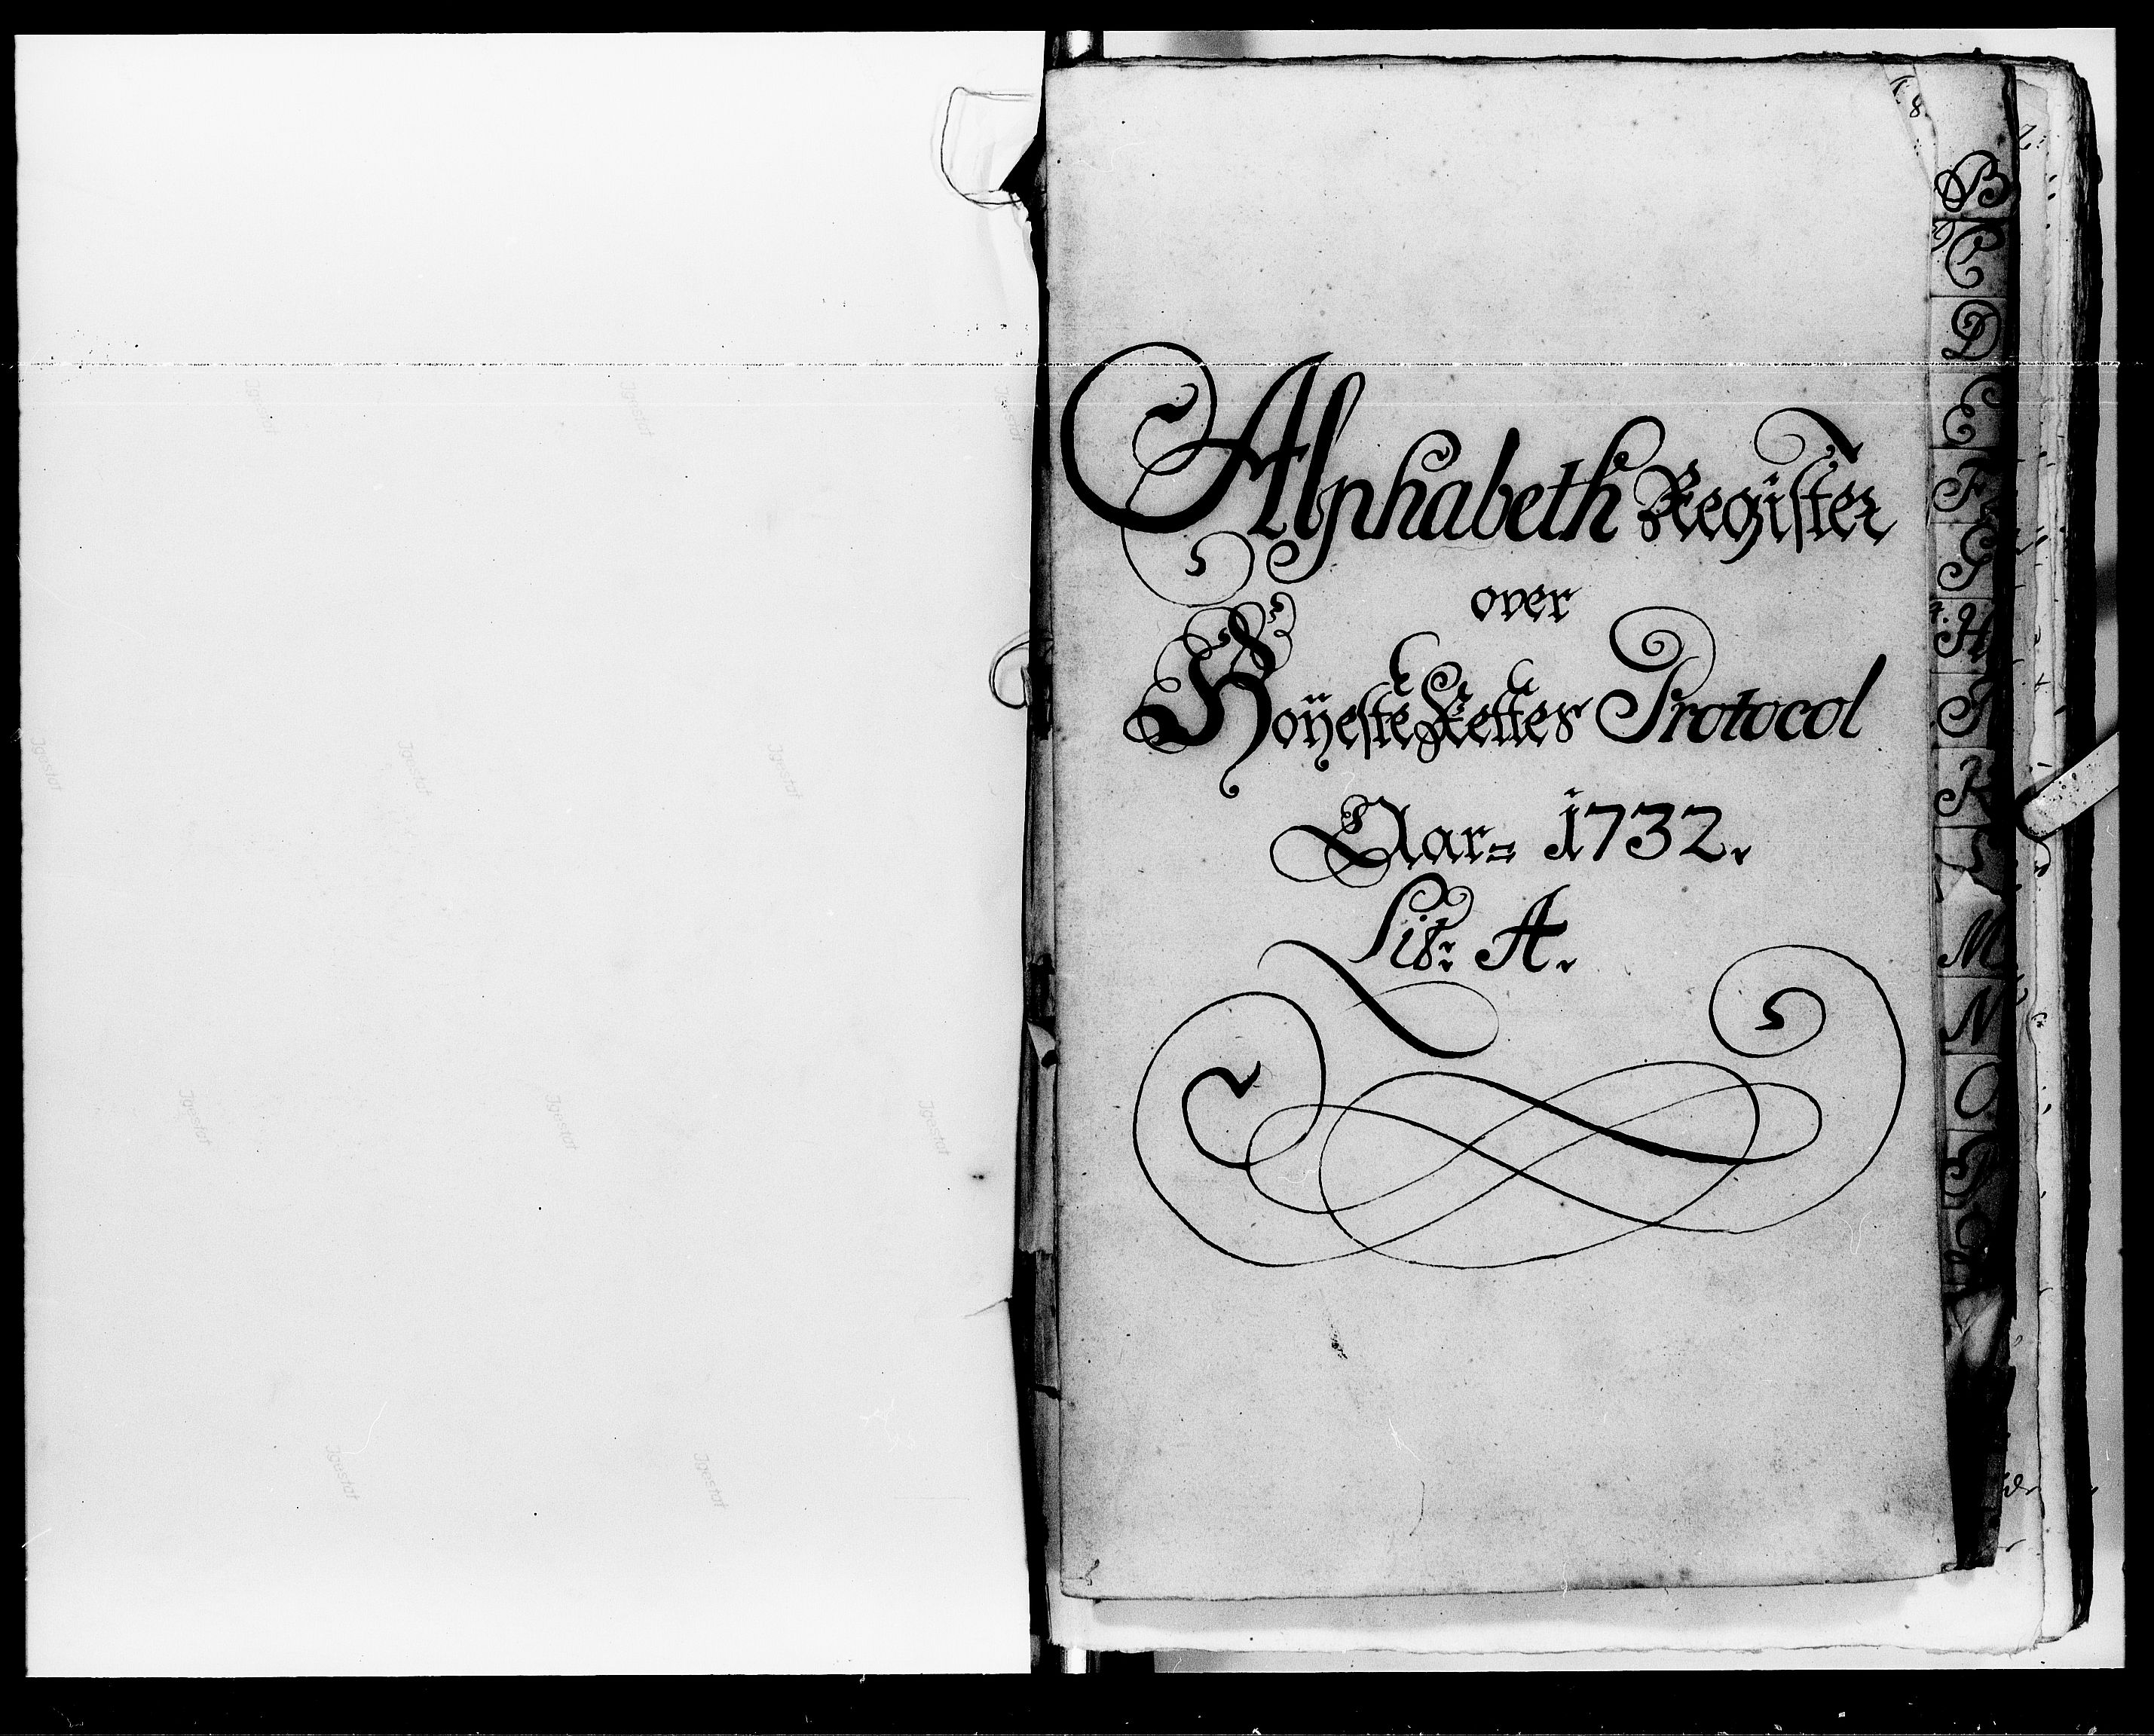 Alphabeth Register
over
Hoÿeste Rettes Protocol
Aar= 1732.
Lit: A.
B
C
D
E
F
G
H
I
K
L
M
N
O
P
Q